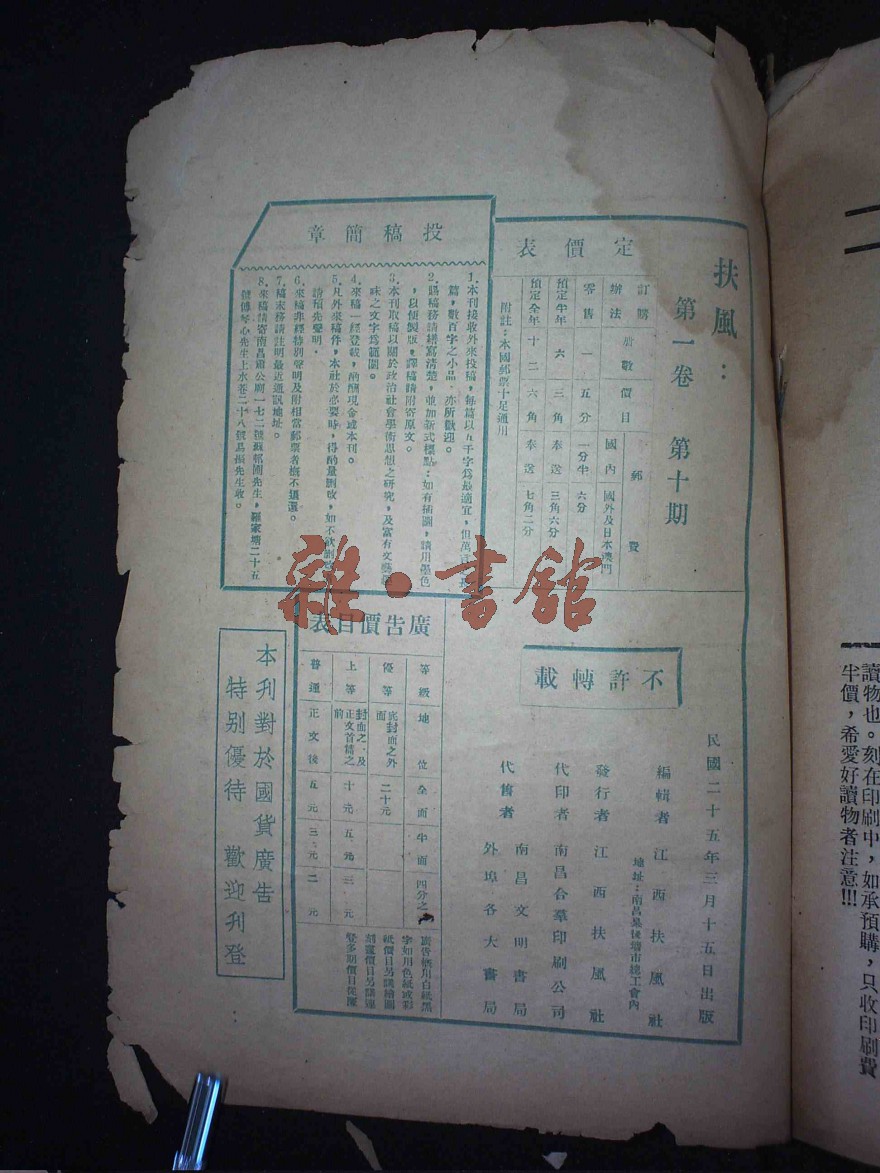 讀物也。刻在印刷中，如承預購，只收印刷費
半價，希愛好讀物者注意!!!
扶風：
第一卷　第十期
定價表
訂購辦法　期數　價目　郵費
國內　國外及日本澳門
零售　一　五分　一分半　六分
預定半年　六　三角　奉送　三角六分
預定全年　十二　六角　奉送　七角二分
附註：本國郵票十足通用
投稿簡章
1.本刊接收外來投稿，每篇以五千字為最適宜，但萬言長
篇，數百字之小品，亦所歡迎。
2.賜稿務請繕寫清楚，並加新式標點；如有插圖，請用墨色
，以便製版，譯稿請附寄原文。
3.本刊取稿以關於政治社會學術思想之研究，及富有文藝
味之文字為範圍。
4.來稿一經登載，酌酬現金或本刊。
5.凡外來稿件，本社於必要時，得酌量刪改，如不欲刪
請預先聲明。
6.來稿非經特別聲明及附相當郵票者概不退還。
7.稿末務請註明最近通訊地址。
8.來稿請寄南昌狀公廟一七二號蘇邨圃先生，羅家塘二十五
號傅琴心先生上水巷二十八號先生收。
不許轉載
民國二十五年三月十五日出版
編輯者　江西扶風社
地址：南昌後墻市總工會內
發行者　江西扶風社
代印者　南昌合羣印刷公司
代售者　南昌文明書局
外埠各大書局
廣告價目表
等級　地位　全面　半面　四分之一
優等　底封面之外面　二十元
上等　封面之及正文首篇之前　十元　五元　三元
普通　正文後　五元　三元　二元
廣告概用白紙黑
字如用色紙或彩
紙價目另議繪圖
刻價目另議連
登多期價目從廉
本刋對於國貨廣告
特别優待　歡迎刋登
雜·書館